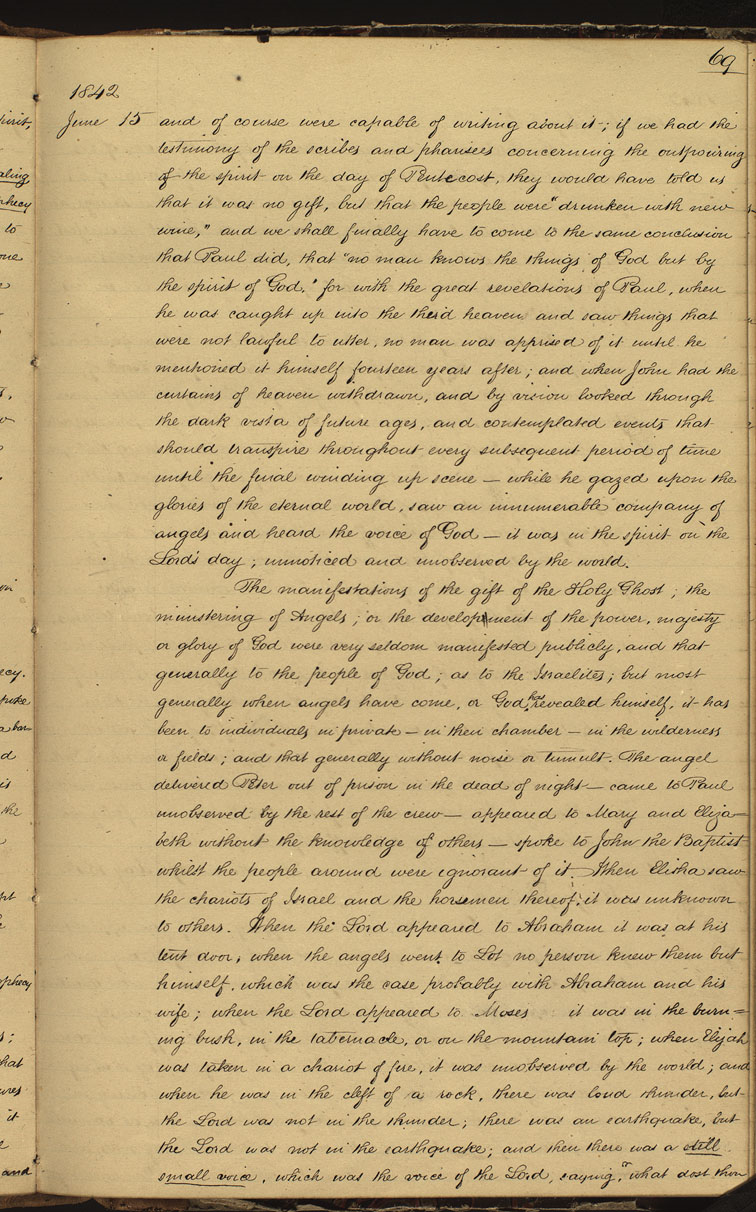 69
1842
June 15 and of course were capable of writing about it; if we had the
testimony of the scribes and pharisees concerning the outpouring
of the spirit on the day of Pentecost, they would have told us
that it was no gift, but that the people were "drunken with new
wine," and we shall finally have to come to the same conclusion
that Paul did, that "no man knows the things of God but by
the spirit of God," for with the great revelations of Paul, when
he was caught up into the third heaven and saw things that
were not lawful to utter, no man was apprised of it until he
mentioned it himself fourteen years after; and when John had the
curtains of heaven withdrawn, and by vision looked through
the dark vista of future ages, and contemplated events that
should transpire throughout every subsequent period of time
until the final winding up scene — while he gazed upon the
glories of the eternal world, saw an innumerable company of
angels and heard the voice of God — it was in the spirit on the
Lord's day; unnoticed and unobserved by the world.
The manifestations of the gift of the Holy Ghost; the
ministering of Angels; or the development of the power, majesty
or glory of God were very seldom manifested publicly, and that
generally to the people of God; as to the Israelites; but most
generally when angels have come, or God has revealed himself, it has
been to individuals in private — in their chamber — in the wilderness
or fields; and that generally without noise or tumult. The angel
delivered Peter out of prison in the dead of night — came to Paul
unobserved by the rest of the crew — appeared to Mary and Eliza=
beth without the knowledge of others — spoke to John the Baptist
whilst the people around were ignorant of it. When Elisha saw
the chariots of Israel and the horsemen thereof; it was unknown
to others. When the Lord appeared to Abraham it was at his
tent door, when the angels went to Lot no person knew them but
himself, which was the case probably with Abraham and his
wife; when the Lord appeared to Moses it was in the burn=
ing bush, in the tabernacle, or on the mountain top; when Elijah
was taken in a chariot of fire, it was unobserved by the world; and
when he was in the cleft of a rock, there was loud thunder, but
the Lord was not in the thunder; there was an earthquake, but
the Lord was not in the earthquake; and then there was a still
small voice, which was the voice of the Lord, saying, "what dost thou